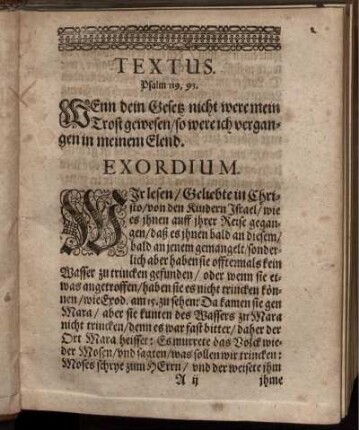 TEXTUS.
Psalm 119. 92.
WEnn dein Gesetz nicht were mein
Trost gewesen/so were ich vergan-
gen in meinem Elend.
EXORDIUM.
WIr lesen/Geliebte in Chri-
sto/von den Kindern Israel/wie
es jhnen auff jhrer Reise gegan-
gen/daß es jhnen bald an diesem/
bald an jenem gemangelt/sonder-
lich aber haben sie offtenmals kein
Wasser zu trincken gefunden/ oder wenn sie et-
was angetroffen/haben sie es nicht trincken kön-
nen/wie Exod. am 15. zu sehen: Da kamen sie gen
Mara/ aber sie kunten des Wassers zu Mara
nicht trincken/denn es war fast bitter/daher der
Ort Mara heisset: Es murrete das Volck wie-
der Mosen/vnd sagten/was sollen wir trincken:
Moses schrye zum HErrn/ vnd der weisete jhm
A ij jhme